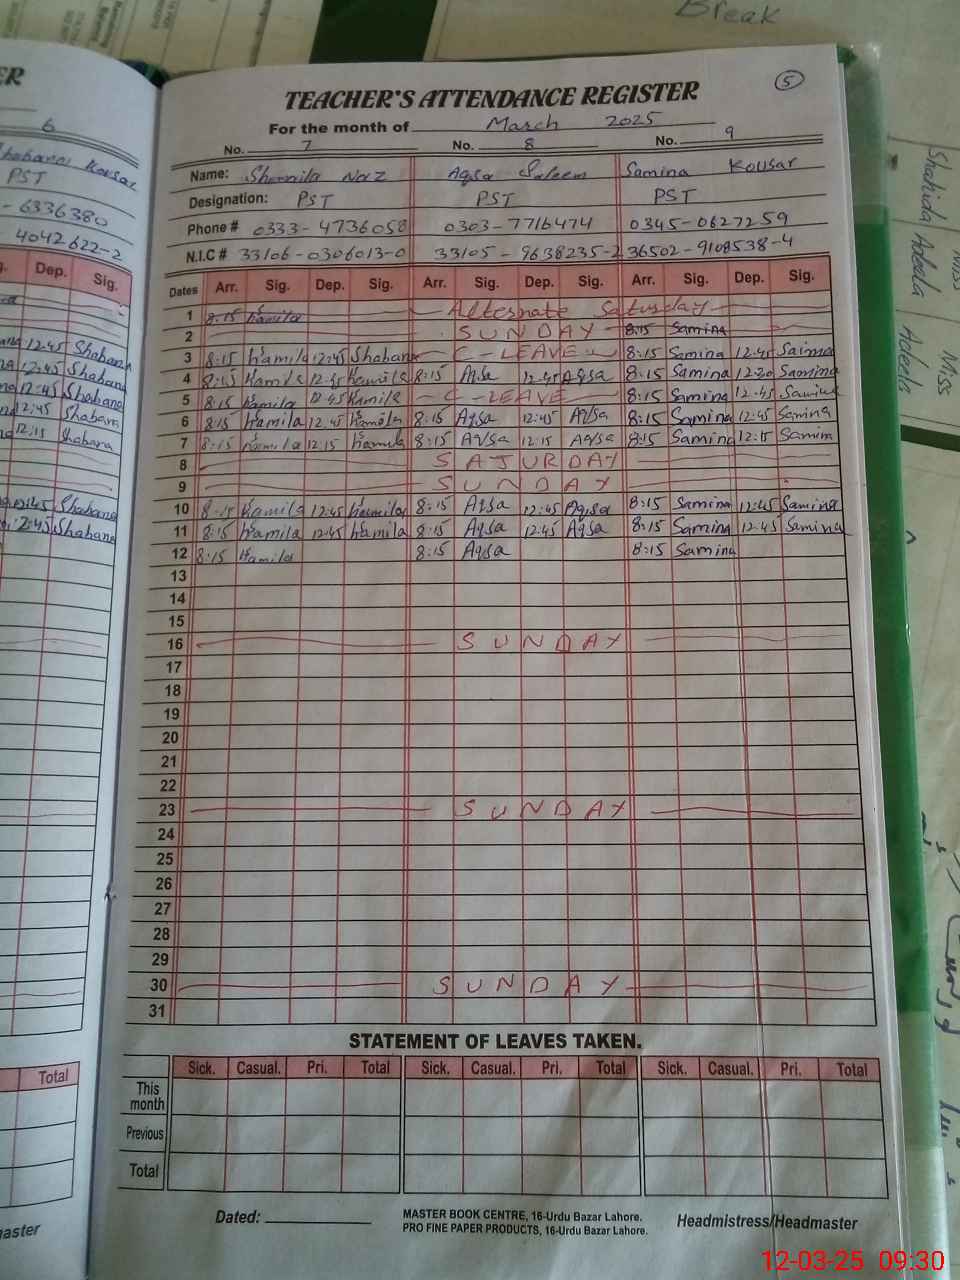 Break
ER
6
Shabana Kousar
PST
- 6336380
4042622-2
Dep. Sig.
12:45 Shabana
12:45 Shabana
12:45 Shabana
12:45 Shabana
12:15 Shabana
12:45 Shabana
12:45 Shabana
Total
master
5
TEACHER'S ATTENDANCE REGISTER
For the month of March 2025
No. 7 No. 8 No. 9
Name: Shamila Naz Aqsa Saleem Samina Kousar
Designation: PST PST PST
Phone # 0333-4736058 0303-7716474 0345-0627259
N.I.C # 33106-0306013-0 33105-9638235-2 36502-9108538-4
Dates Arr. Sig. Dep. Sig. Arr. Sig. Dep. Sig. Arr. Sig. Dep. Sig.
1 8:15 Hamila Alternate Saturday
2 SUNDAY 8:15 Samina
3 8:15 Hamila 12:45 Shabana C-LEAVE 8:15 Samina 12:45 Saima
4 8:15 Hamila 12:45 Hamila 8:15 Aqsa 12:45 Aqsa 8:15 Samina 12:30 Samina
5 8:15 Hamila 12:45 Hamila C-LEAVE 8:15 Samina 12:45 Samina
6 8:15 Hamila 12:45 Hamila 8:15 Aqsa 12:45 Aqsa 8:15 Samina 12:45 Samina
7 8:15 Hamila 12:15 Hamila 8:15 Aqsa 12:15 Aqsa 8:15 Samina 12:15 Samina
8 SATURDAY
9 SUNDAY
10 8:15 Hamila 12:45 Hamila 8:15 Aqsa 12:45 Aqsa 8:15 Samina 12:45 Samina
11 8:15 Hamila 12:45 Hamila 8:15 Aqsa 12:45 Aqsa 8:15 Samina 12:45 Samina
12 8:15 Hamila 8:15 Aqsa 8:15 Samina
13
14
15
16 SUNDAY
17
18
19
20
21
22
23 SUNDAY
24
25
26
27
28
29
30 SUNDAY
31
STATEMENT OF LEAVES TAKEN.
Sick. Casual. Pri. Total Sick. Casual. Pri. Total Sick. Casual. Pri. Total
This month
Previous
Total
Dated:
MASTER BOOK CENTRE, 16-Urdu Bazar Lahore.
PRO FINE PAPER PRODUCTS, 16-Urdu Bazar Lahore.
Headmistress/Headmaster
Shahida Adeela
Miss Adeela
Miss
12-03-25 09:30